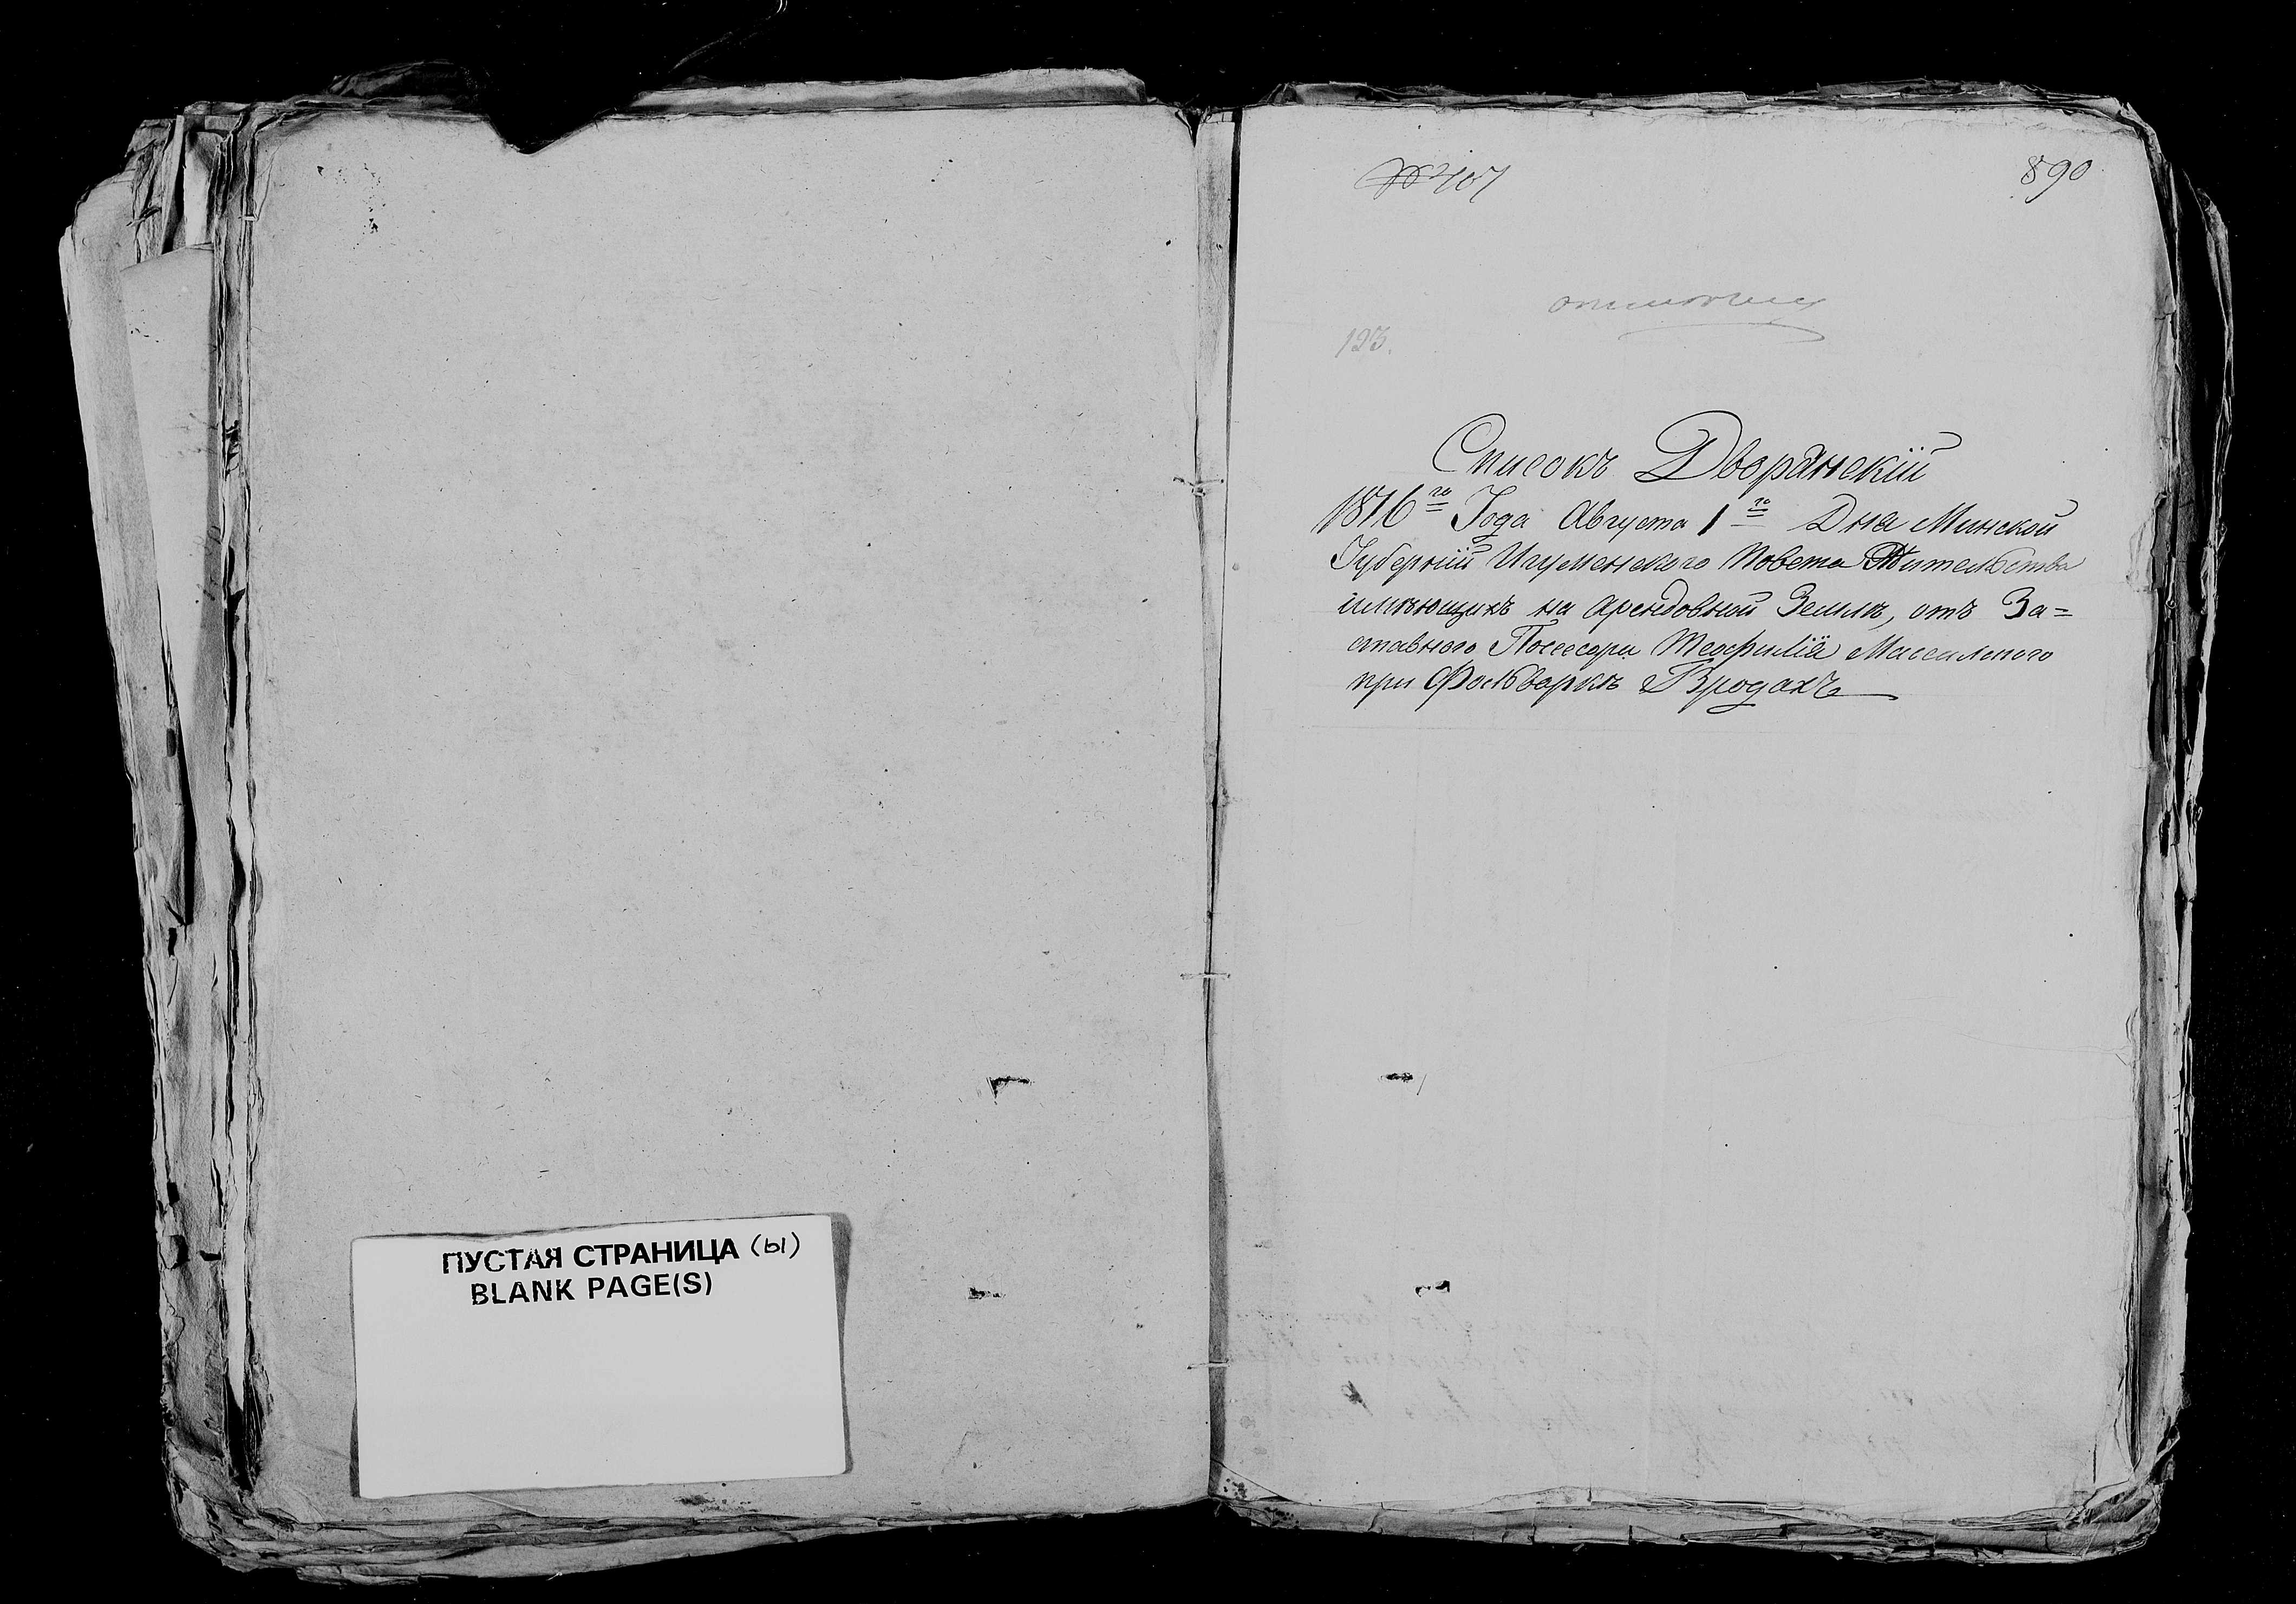 ПУСТАЯ СТРАНИЦА (ы)
BLANK PAGE(S)
№ 407
890
123.
Списокъ Дворянскiй
1816го Года Августа 1го Дня Минской
Губернiи Игуменского Повета Жительства
имѣющихъ на арендовной Землѣ, отъ За=
ставного Посессора Теофилiя
при Фольваркѣ Бродахъ